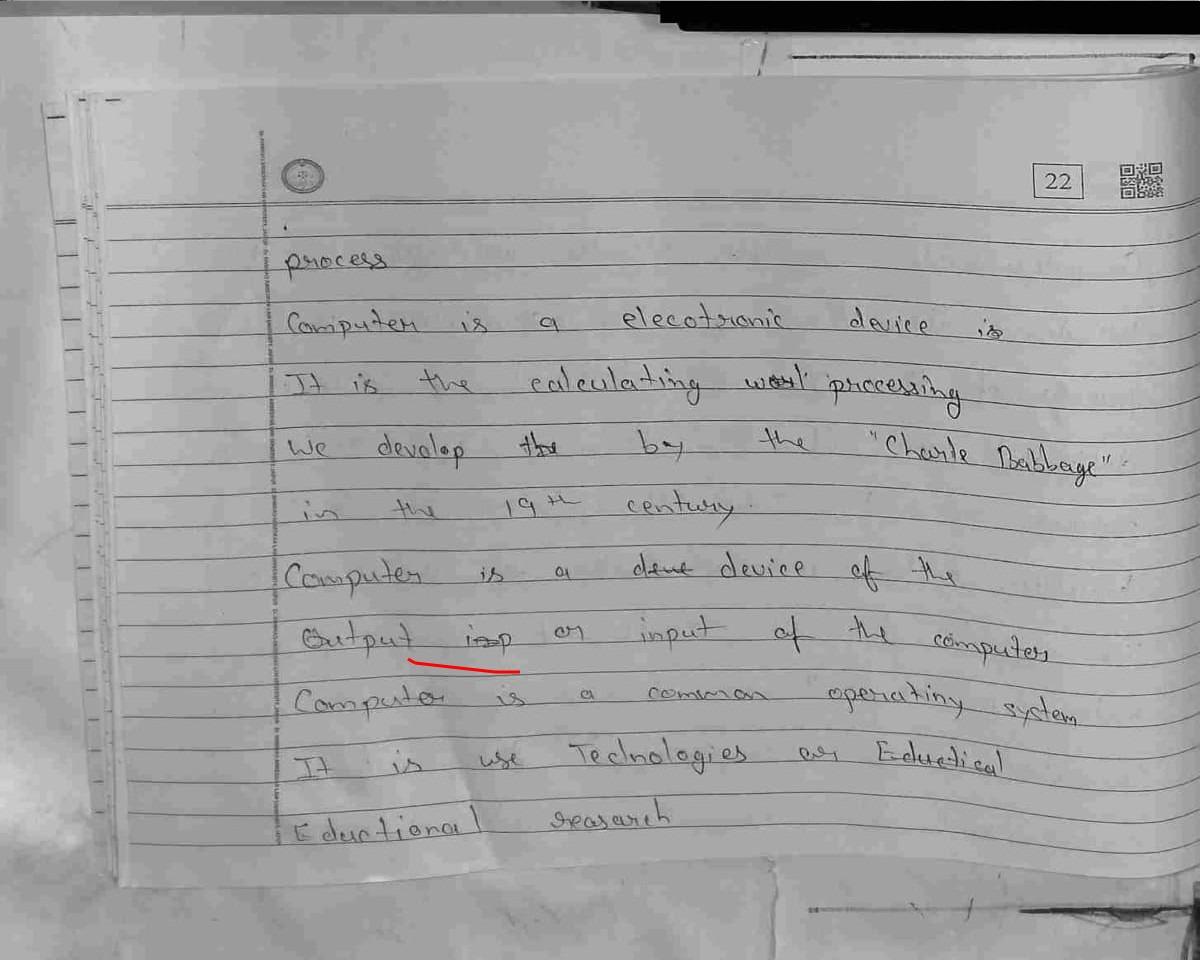 22
process
Computer is a elecotronic device is
It is the calculating work processing
We develop the by the "Charle Babbage"
in the 19th century.
Computer is a deve device of the
Output inp or input of the computer
Computer is a common operatiny system
It is use Technologies or Eductical
Eductional reasarch